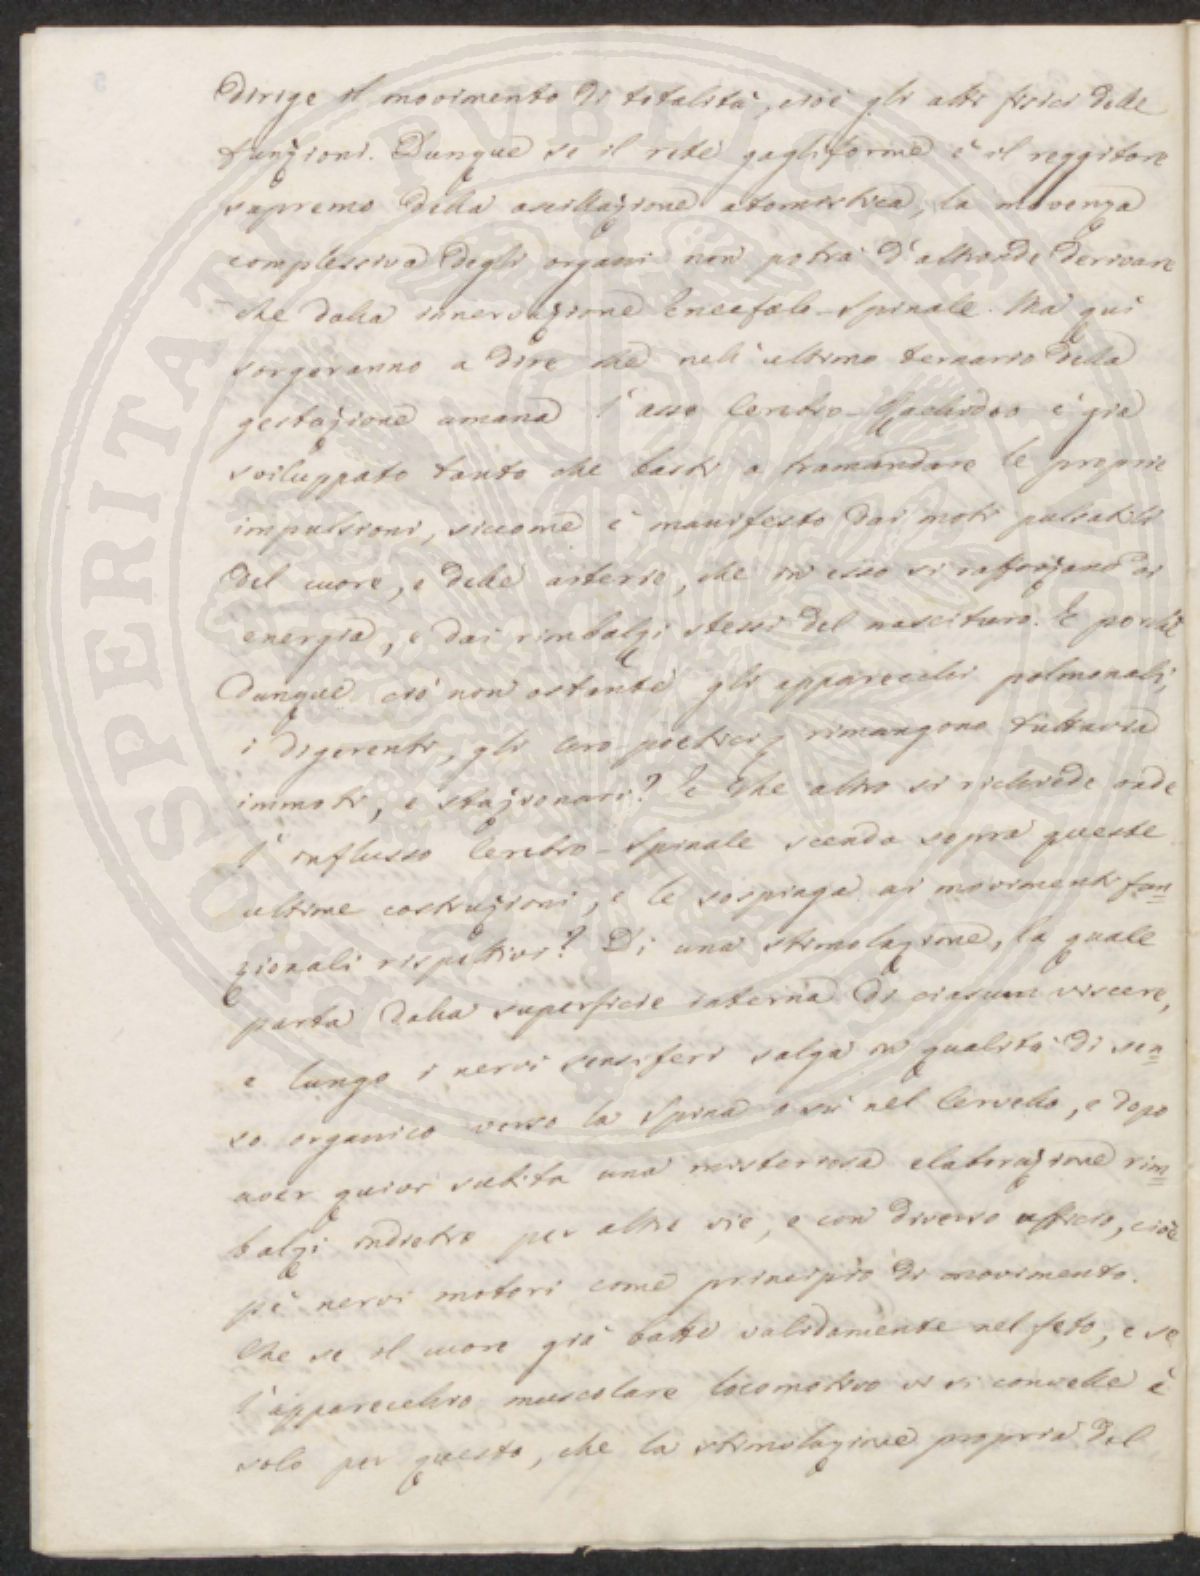 dirige il movimento di totalità, cioè gli atti fisici delle
funzioni. Dunque se il rete gagliforme è il reggitore
supremo della oscillazione atomistica, la movenza
complessiva degli organi non potrà d'altronde derivare
che dalla innervazione Encefalo-Spinale. Ma qui
sorgeranno a dire che nell'ultimo ternario della
gestazione umana l'asse Cerebro-Rachideo è già
sviluppato tanto che basti a tramandare le proprie
impulsioni, siccome è manifesto dai moti pulsatili
del cuore, e delle arterie, che in esso si rafforzano di
energia, e dai rimbalzi stessi del nascituro. E perchè
dunque ciò non ostante gli apparecchi polmonali,
i digerenti, gli uro-poetici rimangono tuttavia
immoti, e stazionari? E che altro si richiede onde
l'influsso Cerebro-Spinale scenda sopra queste
ultime costruzioni, e le sospinga ai movimenti fun=
zionali rispettivi? Di una stimolazione, la quale
parta dalla superficie interna di ciascun viscere,
e lungo i nervi sensiferi salga in qualità di sen=
so organico verso la Spina o sù nel Cervello, e dopo
aver quivi subita una misteriosa elaborazione rim=
balzi indietro per altre vie, e con diverso ufficio, cioè
pe' nervi motori come principio di movimento.
Che se il cuore già batte validamente nel feto, e se
l'apparecchio muscolare locomotivo vi si convelle è
solo per questo, che la stimolazione propria del
SPERITATI PVBLICAE